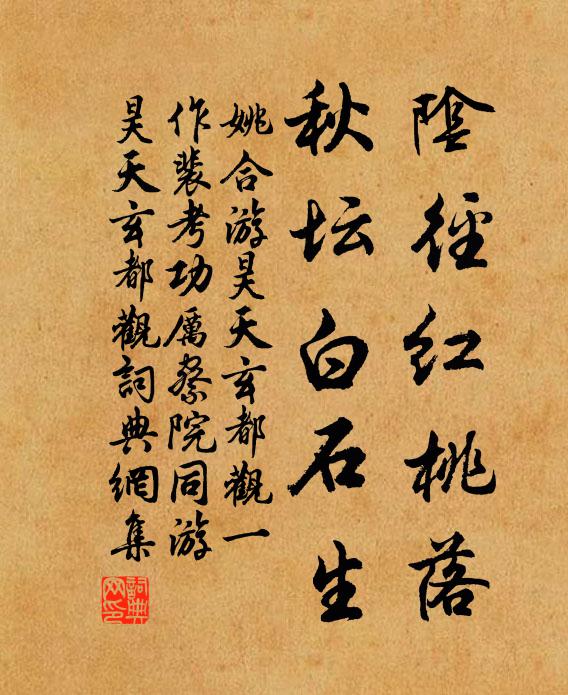 陰徑红桃落
秋坛白石生
姚合游昊天玄都觀一
作裴考功厲察院同游
昊天玄都觀詞典網集
詞典网印